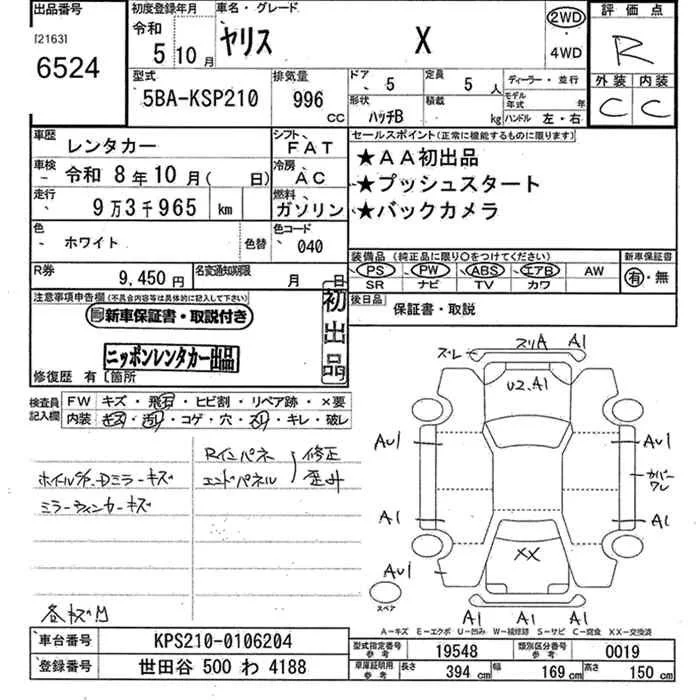 出品番号
[2163]
6524
初度登録年月
令和
5年10月
車名・グレード
ヤリス X
2WD
・
4WD
評価点
R
外装 内装
C C
型式
5BA-KSP210
排気量
996 CC
ドア
5
形状
ハッチB
定員
5 人
積載
kg
ディーラー・並行
モデル年式 年
ハンドル 左・右
車歴
レンタカー
車検
令和 8年10月( 日)
走行
9万3千965 km
シフト
FAT
冷房
AC
燃料
ガソリン
セールスポイント(正常に機能するものに限ります)
★AA初出品
★プッシュスタート
★バックカメラ
色
ホワイト
色替
色コード
040
装備品(純正品に限り○をつけてください)
PS PW ABS エアB AW
SR ナビ TV カワ
新車保証書
有・無
R券
9,450円
名変通知期限
月 日
後日品
保証書・取説
注意事項申告欄(不具合内容等は具体的に記入して下さい)
新車保証書・取説付き
初出品
ニッポンレンタカー出品
修復歴 有〔箇所
検査員記入欄
FW キズ・飛石・ヒビ割・リペア跡・×要
内装 ・コゲ・穴・・キレ・破し
Rインパネ 修正
エンドパネル 歪み
ホイールC/P.Dミラーキズ
ミラーウィンカーキズ
ズレ スリA A1
U2.A1
AU1 AU1
カバーワレ
A1 A1
XX
AU1 A1
スペア
A1 A1 A1
A−キズ E−エクボ U−凹み W−補修跡 S−サビ C−腐食 XX−交換済
車台番号
KPS210-0106204
登録番号
世田谷 500 わ 4188
型式指定番号 参考
19548
類別区分番号 参考
0019
車庫証明用 参考
長さ 394 cm
幅 169 cm
高さ 150 cm